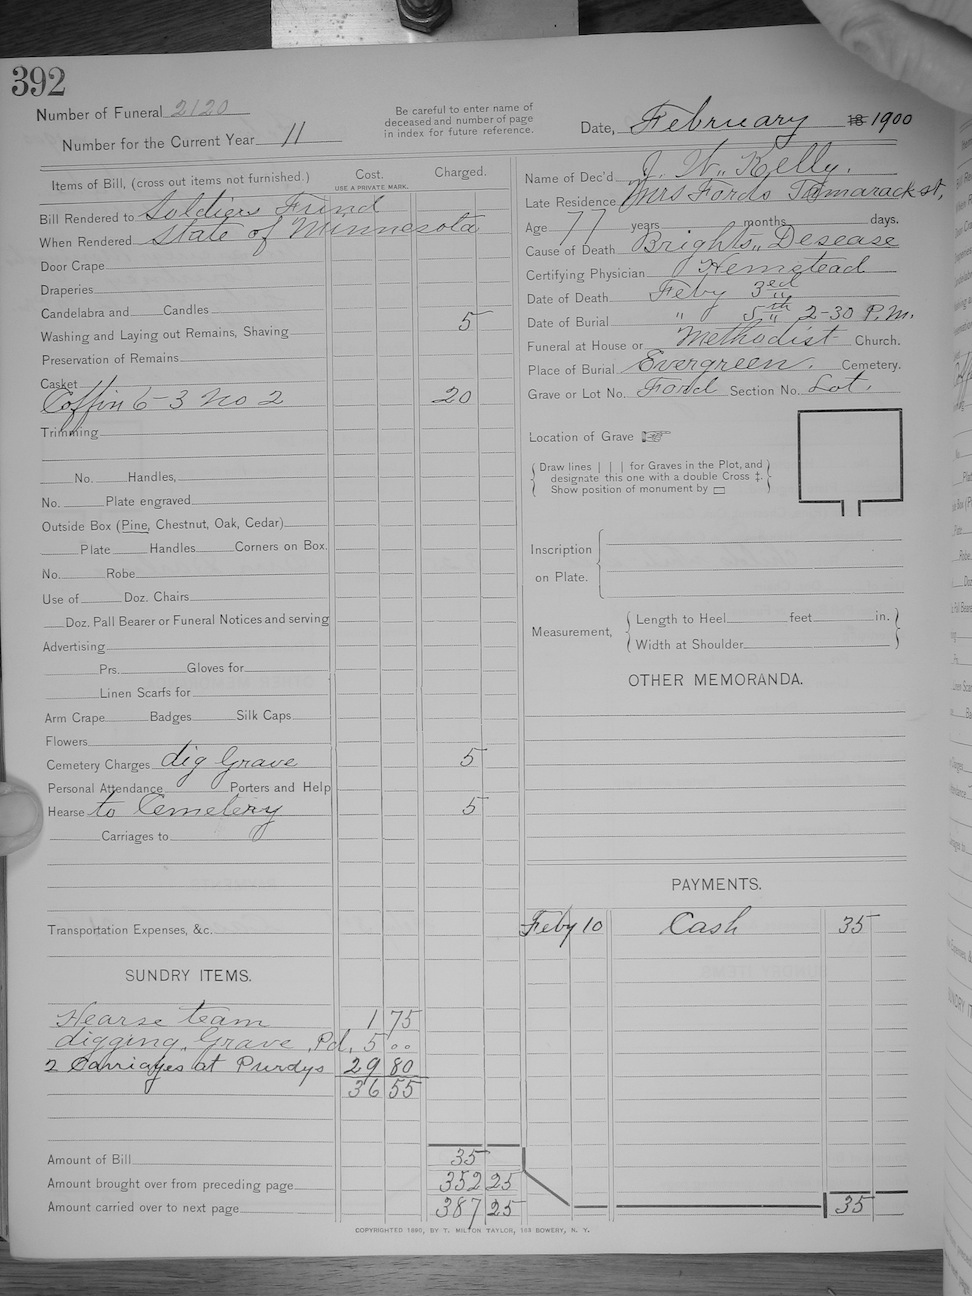 392
Number of Funeral 2120
Number for the Current Year 11
Be careful to enter name of
deceased and number of page
in index for future reference.
Date, February 18 1900
Items of Bill, (cross out items not furnished.) Cost. Charged.
USE A PRIVATE MARK.
Bill Rendered to Soldiers Frind
When Rendered State of Minnesota
Door Crape
Draperies
Candelabra and Candles
Washing and Laying out Remains, Shaving 5
Preservation of Remains
Casket
Coffin 6-3 No 2 20
Trimming
No. Handles,
No. Plate engraved
Outside Box (Pine, Chestnut, Oak, Cedar)
Plate Handles Corners on Box.
No. Robe
Use of Doz. Chairs
Doz. Pall Bearer or Funeral Notices and serving
Advertising
Prs. Gloves for
Linen Scarfs for
Arm Crape Badges Silk Caps
Flowers
Cemetery Charges dig Grave 5
Personal Attendance Porters and Help
Hearse to Cemetery 5
Carriages to
Transportation Expenses, &c.
SUNDRY ITEMS.
Hearse team 1 75
digging Grave Pd. 5 00
2 Carriages at Purdys 29 80
36 55
Amount of Bill 35
Amount brought over from preceding page 352 25
Amount carried over to next page 387 25
Name of Dec'd J. W. Kelly.
Late Residence Mrs Fords Tamarack st,
Age 77 years months days.
Cause of Death Brights Desease
Certifying Physician Hemstead
Date of Death Feby 3ed
Date of Burial " 5th 2-30 P.M.
Funeral at House or Methodist Church.
Place of Burial Evergreen. Cemetery.
Grave or Lot No. Ford Section No. Lot.
Location of Grave ☞
Draw lines | | | for Graves in the Plot, and
designate this one with a double Cross ‡.
Show position of monument by ▭
Inscription
on Plate.
Measurement,
Length to Heel feet in.
Width at Shoulder
OTHER MEMORANDA.
PAYMENTS.
Feby 10 Cash 35
35
COPYRIGHTED 1890, BY T. MILTON TAYLOR, 163 BOWERY, N. Y.